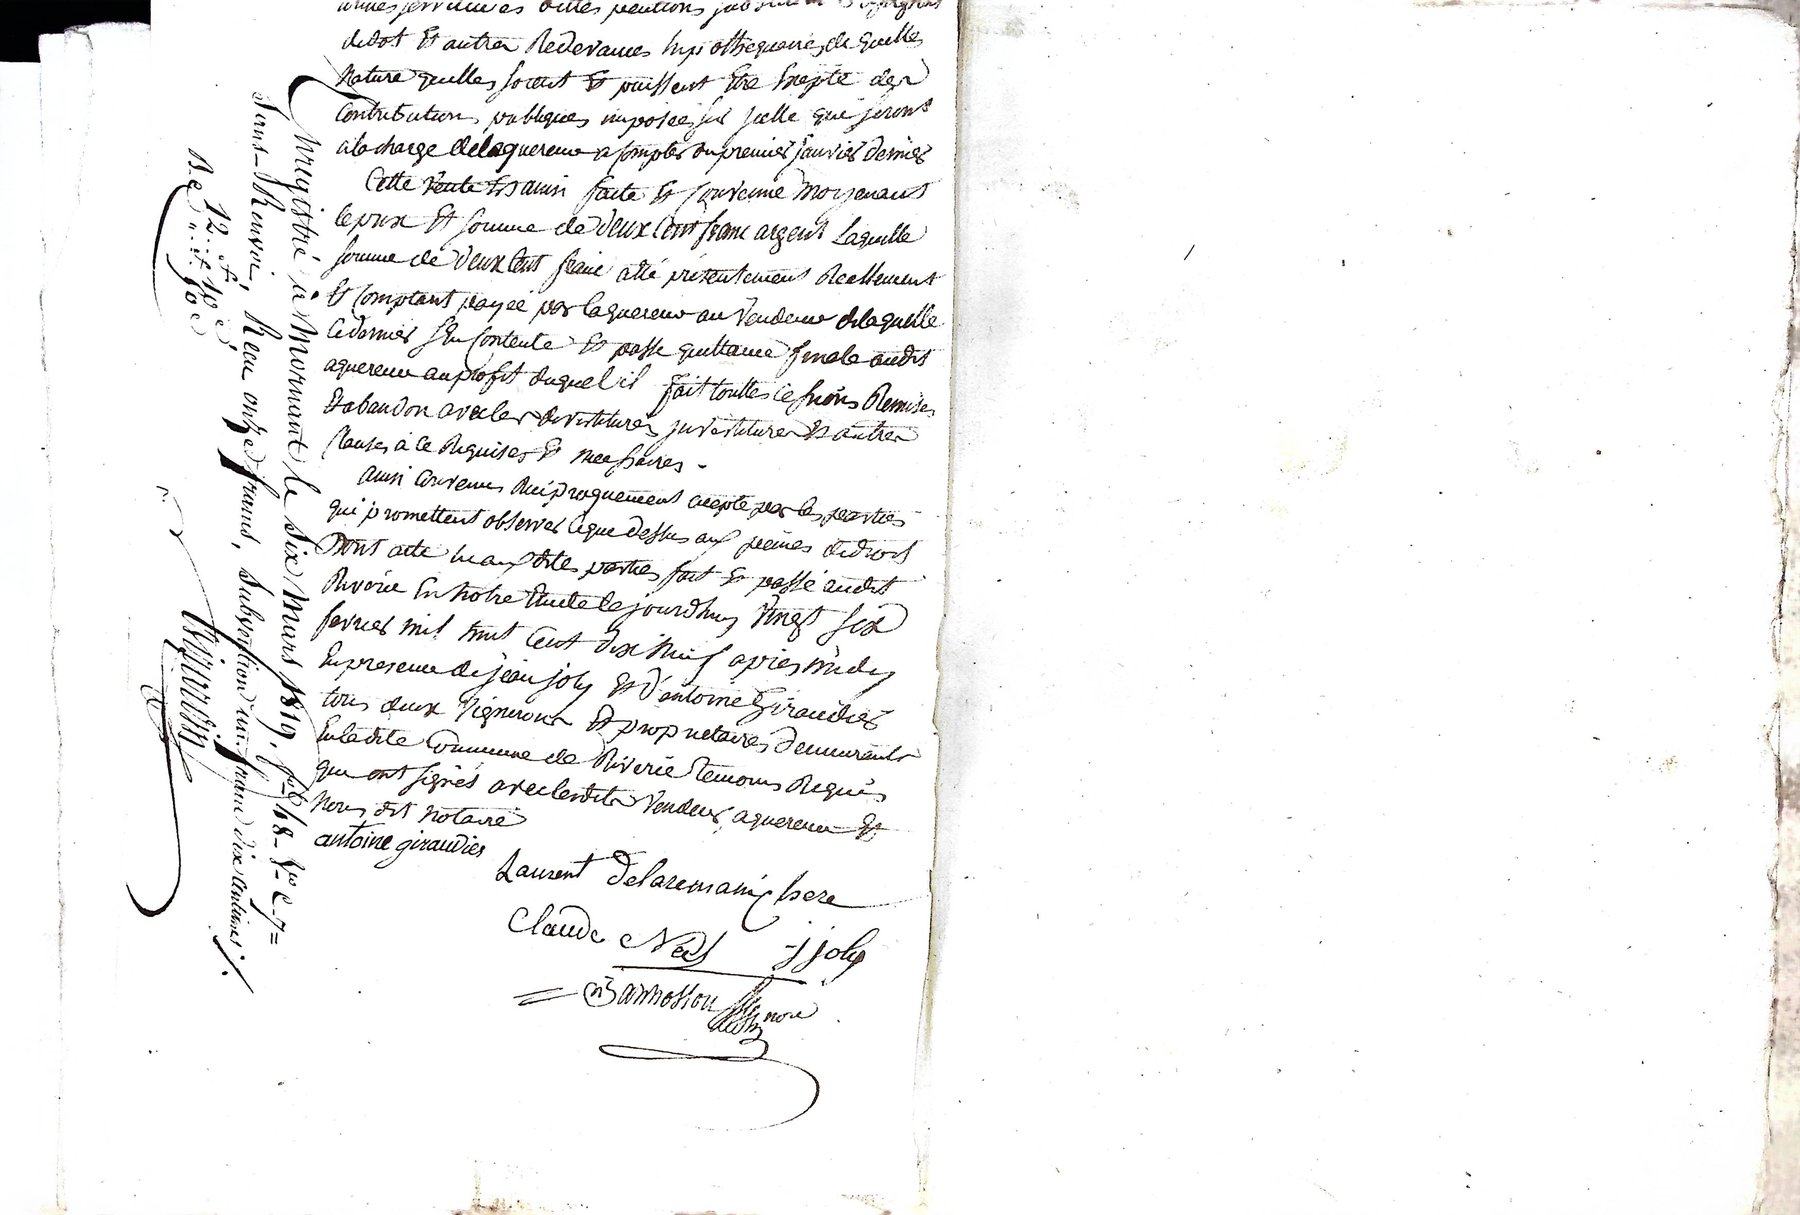 didot Et autres Redevances hipothequaires de quelles
Nature quelles soient Et puissent Etre Exepté des
Contributions publiques imposées sur jcelle qui seront
ala charge delaquereur a Compter du premier janvier dernier
Cette Vente Est ainsi faite Et Convenue Moyenant
le prix Et somme de deux Cent franc argent Laquelle
somme de deux Cent franc atté présentement Reellement
Et Comptant payée par laquereur au Vendeur delaquelle
Cedernier sen Contente Et passe quittance finale audit
aquereur auprofit duquel il fait touttes Cessions Remises
Et abandon avec les devestitures jnvestitures Et autres
Clauses à Ce Requises Et necessaires -
ainsi Convenus Reciproquement acepte par les parties
qui promettent observer Ceque dessus aux peines dedroit
Dont acte lu aux dites parties fait Et passé audit
Riverie En Notre Etude le jourdhuy Vingt six
fevrier mil huit Cent dix Neuf après midy
En presence de jean joly Et d'antoine Giraudier
tous deux Vignerons Et proprietaires demeurants
En ladite Commune de Riverie temoins Requis
qui ont signés avec lesdits Vendeur, aquereur Et
Nous dit Notaire
antoine giraudier
Laurent
Claude
j joly
Enregistré à Mornant le six Mars 1819, f° 68 - V° C. 7 =
sans Renvoi, Reçu onze francs, subvention un franc dix centimes /.